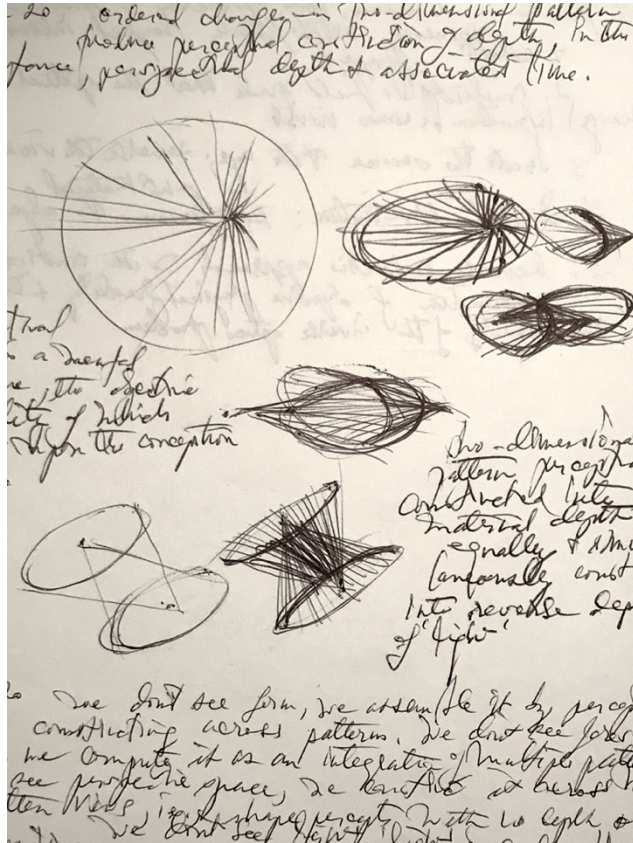 20 ordered changes in two-dimensional pattern
produce perceptual construction of depth, in this
tance, perspectival depth & associated time.
tival
a mental
the objective
lity of which
upon the conception
two-dimensiona
pattern percept
constructed into
material depth
equally & simu
taneously const
into reverse dep
of 'light'
we don't see form, we assemble it by percep
constructing across patterns. We don't see
we compute it as an integration of multiple patte
see perspective space, we construct it across
shape percepts with no depth
We don't see light